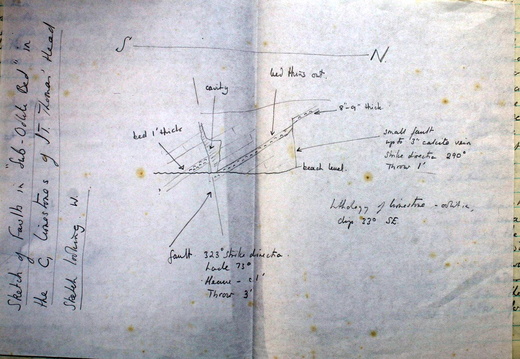 Sketch of Faults in "Sub-Oolite Bed" in
the C, limestones of St. Thomas' Head
Sketch looking W.
S N
cavity
bed thins out
bed 1' thick
8"-9" thick
small fault
up to 3" calcite vein
strike direction 290°
Throw 1'
beach level
Lithology of limestone - oolitic,
dip 33° SE.
fault 323° strike direction
Hade 73°
Heave - 1'
Throw 3'